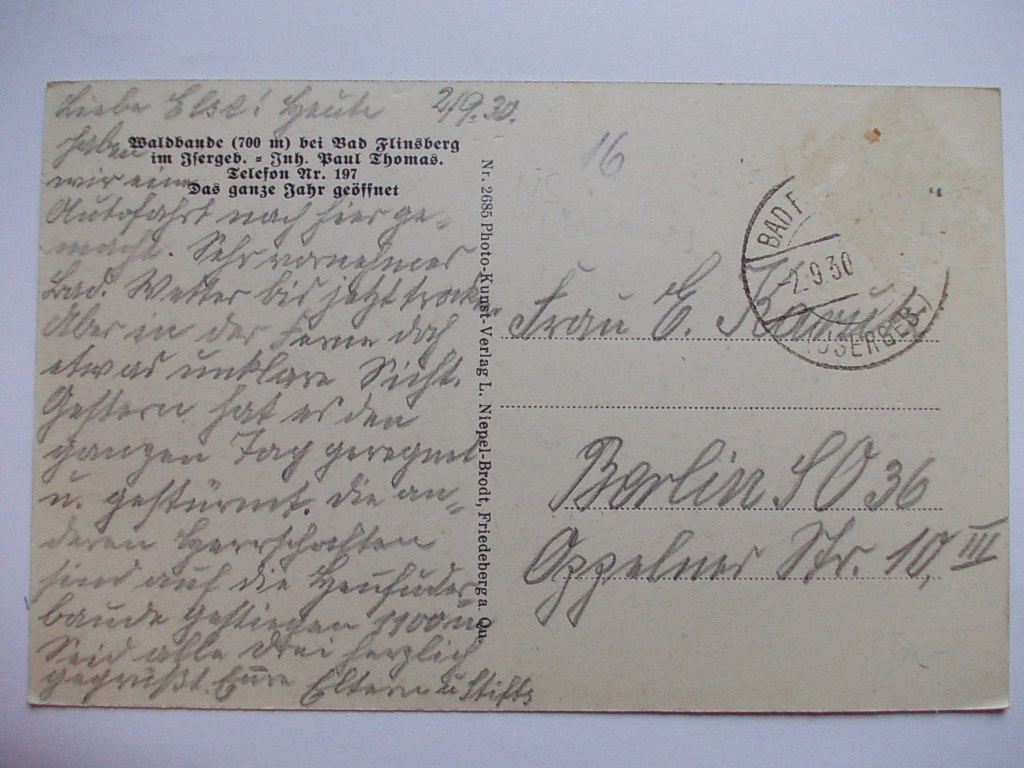 Liebe Else! Heute 2/9.30.
haben
wir eine
Autofahrt nach hier ge-
macht. Sehr vornehmes
Bad. Wetter bis jetzt trocken
Aber in der Ferne doch
etwas unklare Sicht.
Gestern hat es den
ganzen Tag geregnet
u. gestürmt. Die an-
deren Herrschaften
sind auf die Heufuder-
baude gestiegen 1100 m
Seid alle drei herzlich
gegrüßt. Eure Eltern u.
Waldbaude (700 m) bei Bad Flinsberg
im Isergeb. = Inh. Paul Thomas.
Telefon Nr. 197
Das ganze Jahr geöffnet
Nr. 2685 Photo-Kunst-Verlag L. Niepel-Brodt, Friedeberg a. Qu.
16
BAD F
-2.9.30
(ISERGEB.)
Frau E.
Berlin SO 36
Oppelner Str. 10, III